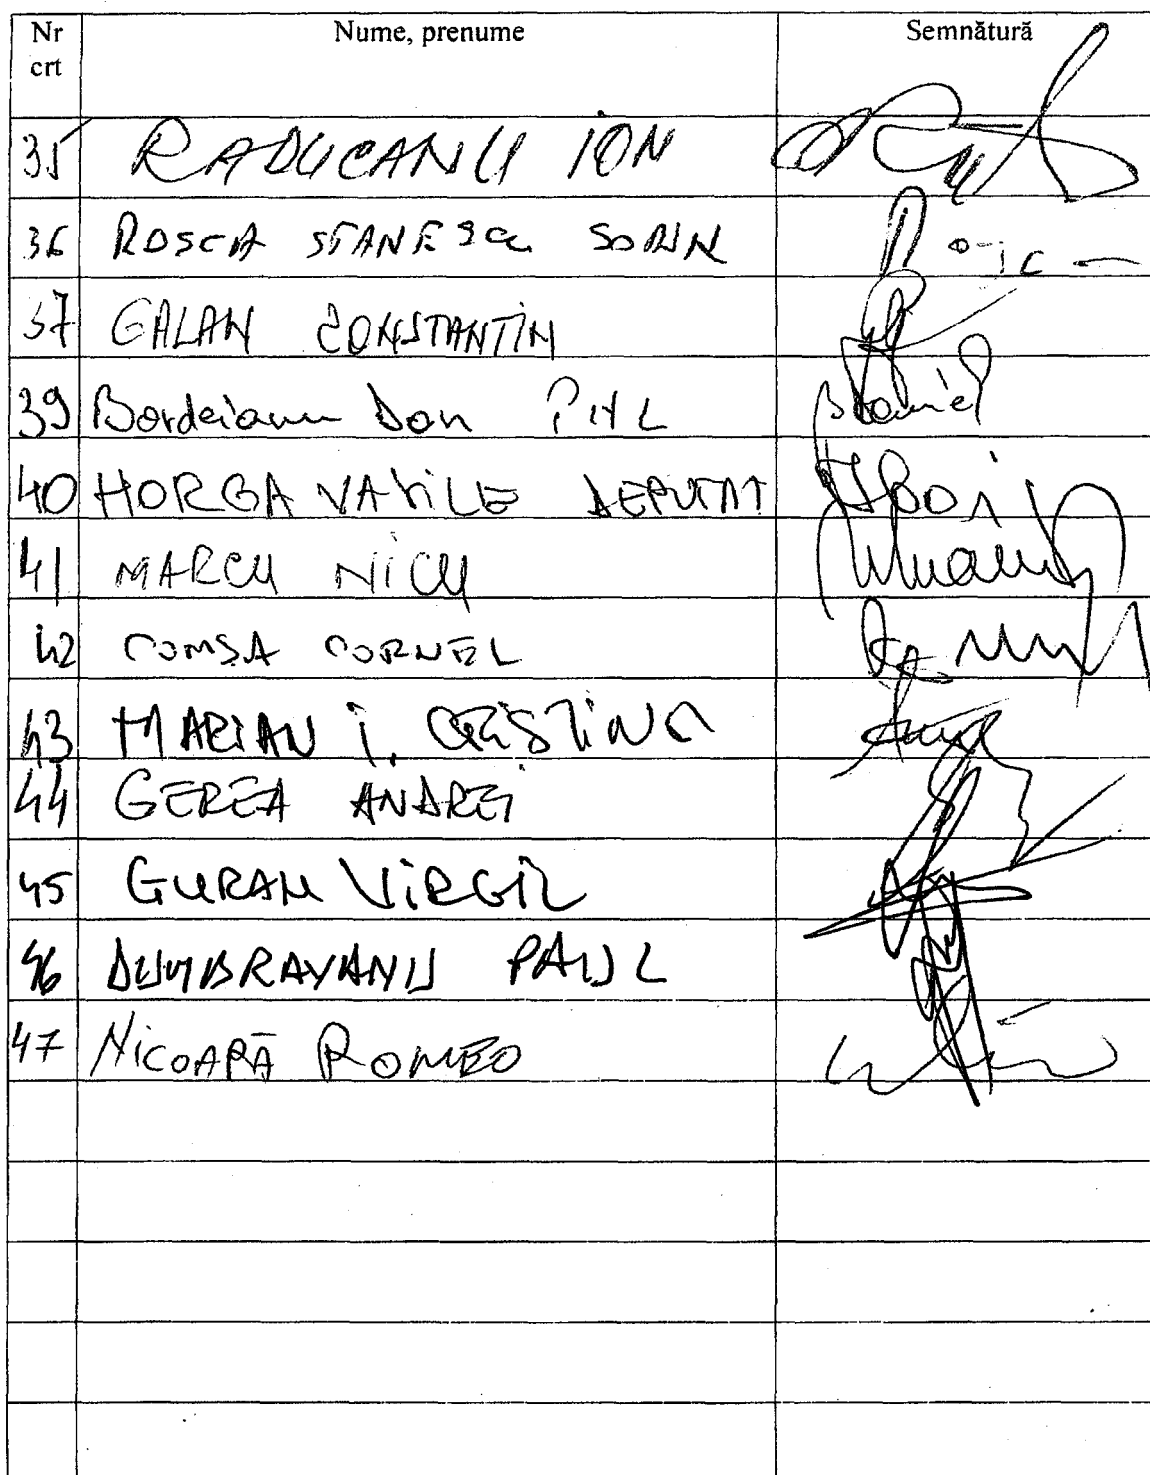 Nr crt Nume, prenume Semnătură
35 RADUCANU ION
36 ROSCA STANESCU SORIN
37 GALAN CONSTANTIN
39 Bordeianu Dan PNL
40 HORGA VASILE DEPUTAT
41 MARCU NICU
42 COMSA CORNEL
43 MARIAN I. CRISTINA
44 GEREA ANDREI
45 GURAN VIRGIL
46 DUMBRAVANU PAUL
47 NICOARĂ ROMEO